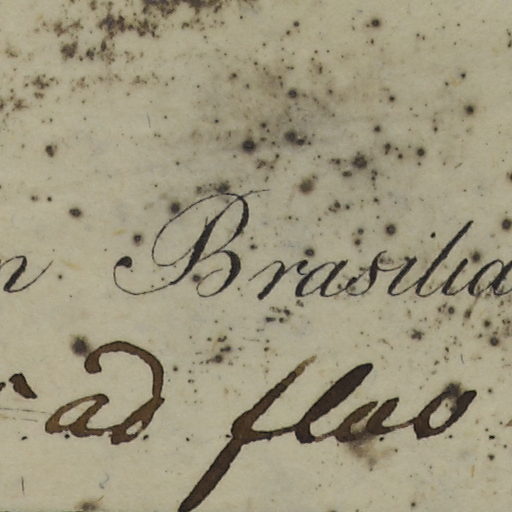 n Brasilia
ad fluv